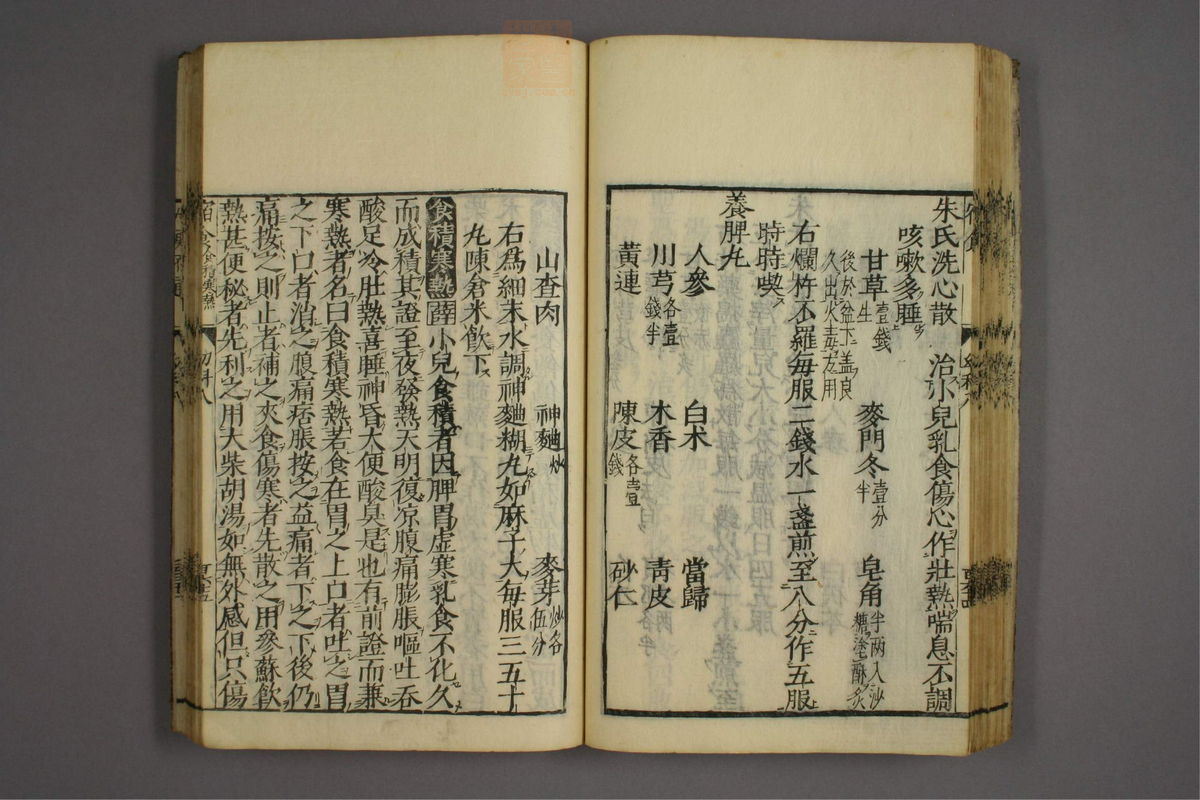 朱氏洗心散　治小兒乳食傷心作壯熱喘息不調
咳嗽多睡
甘草壹錢生　麥門冬壹分半　皂角半兩入沙糖塗酥炙
後於盆下盖良久出火毒方用
右爛杵不羅每服二錢水一盞煎至八分作五服
時時喫
養脾丸
人參　白术　當歸
川芎各壹錢半　木香　青皮
黄連　陳皮各壹錢　砂仁
山查肉　神麯炒　麥芽炒各伍分
右爲細末水調神麯糊丸如麻子大每服三五十
丸陳倉米飲下
食積寒熱薛小兒食積者因脾胃虚寒乳食不化久
而成積其證至夜發熱天明復凉腹痛膨脹嘔吐吞
酸足冷肚熱喜睡神昏大便酸臭是也有前證而兼
寒熱者名曰食積寒熱若食在胃之上口者吐之胃
之下口者消之腹痛痞脹按之益痛者下之下後仍
痛按之則止者補之夾食傷寒者先散之用參蘇飲
熱甚便秘者先利之用大柴胡湯如無外感但只傷